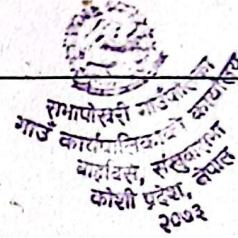 सभापोखरी गाउँपालिका
गाउँ कार्यपालिकाको कार्यालय
बाह्रविसे, संखुवासभा
कोशी प्रदेश, नेपाल
२०७३